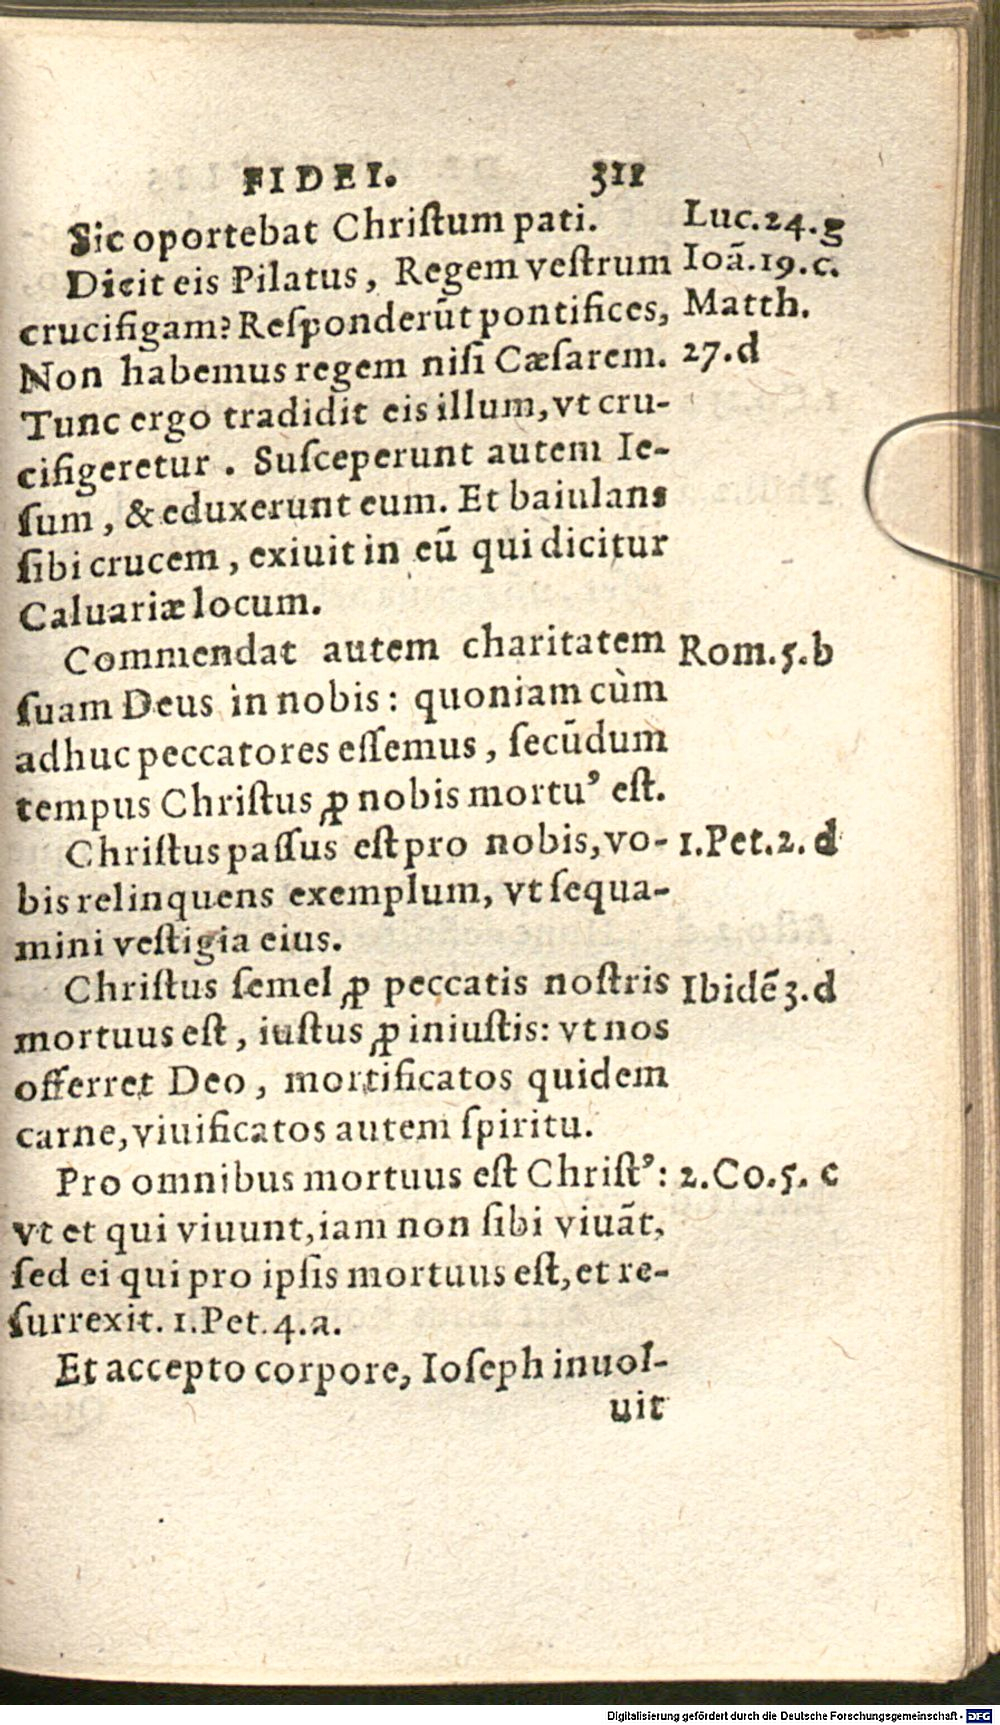 FIDEI. 311
Sic oportebat Chriſtum pati. Luc.24.g
Dicit eis Pilatus, Regem veſtrum Ioã.19.c.
crucifigam? Reſponderũt pontifices, Matth.
Non habemus regem niſi Cæſarem. 27.d
Tunc ergo tradidit eis illum, vt cru-
cifigeretur. Suſceperunt autem Ie-
ſum, & eduxerunt eum. Et baiulans
ſibi crucem, exiuit in eũ qui dicitur
Caluariæ locum.
Commendat autem charitatem Rom.5.b
ſuam Deus in nobis: quoniam cùm
adhuc peccatores eſſemus, ſecũdum
tempus Chriſtus ꝓ nobis mortuꝰ eſt.
Chriſtus paſſus eſt pro nobis, vo- 1.Pet.2.d
bis relinquens exemplum, vt ſequa-
mini veſtigia eius.
Chriſtus ſemel ꝓ peccatis noſtris Ibidẽ 3.d
mortuus eſt, iuſtus ꝓ iniuſtis: vt nos
offerret Deo, mortificatos quidem
carne, viuificatos autem ſpiritu.
Pro omnibus mortuus eſt Chriſtꝰ: 2.Co.5.c
vt et qui viuunt, iam non ſibi viuãt,
ſed ei qui pro ipſis mortuus eſt, et re-
ſurrexit. 1.Pet.4.a.
Et accepto corpore, Ioſeph inuol-
uit
Digitalisierung gefördert durch die Deutsche Forschungsgemeinschaft - DFG